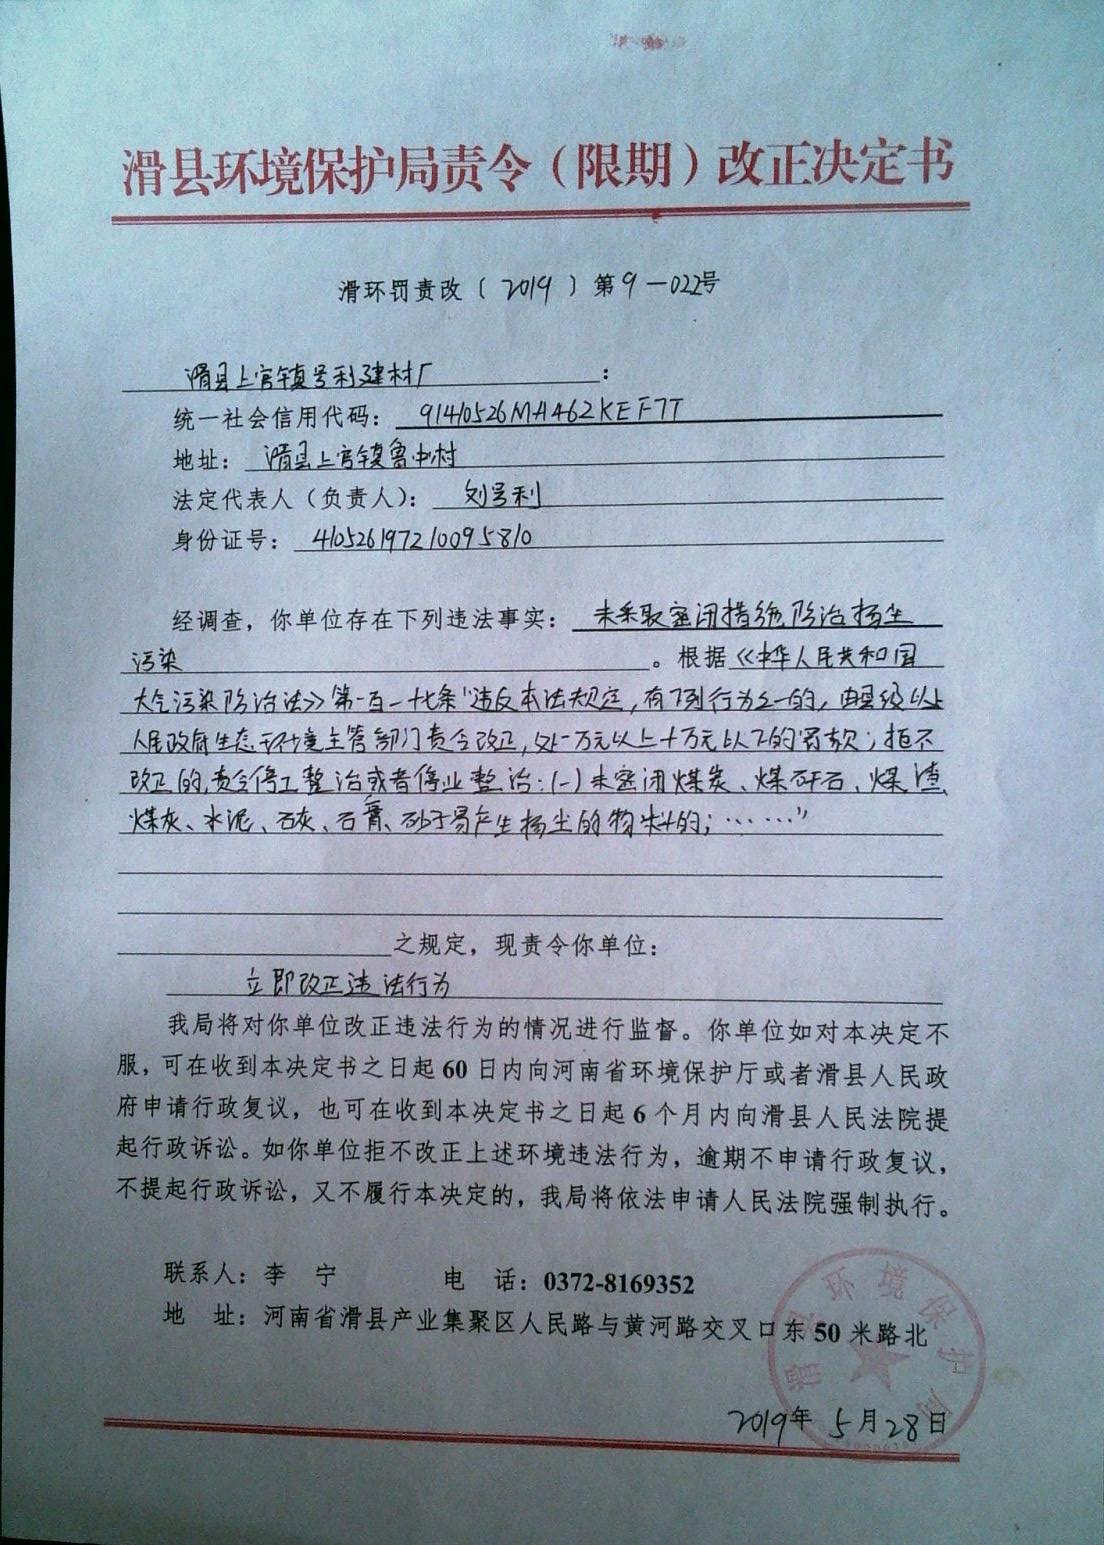 滑县环境保护局责令（限期）改正决定书
滑环罚责改（2019）第9—022号
滑县上官镇号利建材厂：
统一社会信用代码：91410526MA462KEF7T
地址：滑县上官镇鲁中村
法定代表人（负责人）：刘号利
身份证号：410526197210095810
经调查，你单位存在下列违法事实：未采取密闭措施防治扬尘
污染。根据《中华人民共和国
大气污染防治法》第一百一十七条“违反本法规定，有下列行为之一的，由县级以上
人民政府生态环境主管部门责令改正，处一万元以上十万元以下的罚款；拒不
改正的，责令停工整治或者停业整治：(一)未密闭煤炭、煤矸石、煤渣、
煤灰、水泥、石灰、石膏、砂土等易产生扬尘的物料的；……”
之规定，现责令你单位：
立即改正违法行为
我局将对你单位改正违法行为的情况进行监督。你单位如对本决定不
服，可在收到本决定书之日起60日内向河南省环境保护厅或者滑县人民政
府申请行政复议，也可在收到本决定书之日起6个月内向滑县人民法院提
起行政诉讼。如你单位拒不改正上述环境违法行为，逾期不申请行政复议，
不提起行政诉讼，又不履行本决定的，我局将依法申请人民法院强制执行。
联系人：李 宁 电 话：0372-8169352
地 址：河南省滑县产业集聚区人民路与黄河路交叉口东50米路北
滑县环境保护局
2019年5月28日